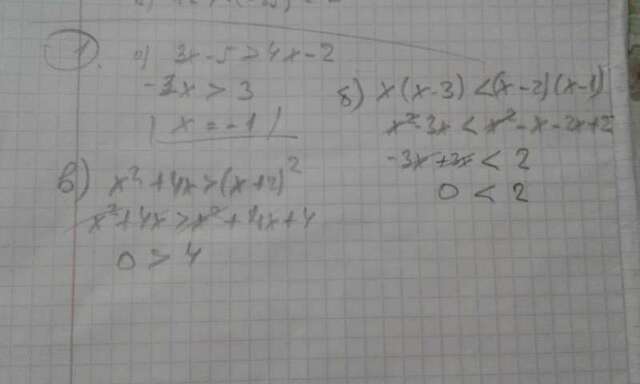 1.
а) x-5>4x-2
-3x>3
x=-1
б) x(x-3)<(x-2)(x-1)
x²-3x<x²-x-2x+2
-3x+3x<2
0<2
в) x²+4x>(x+2)²
x²+4x>x²+4x+4
0>4